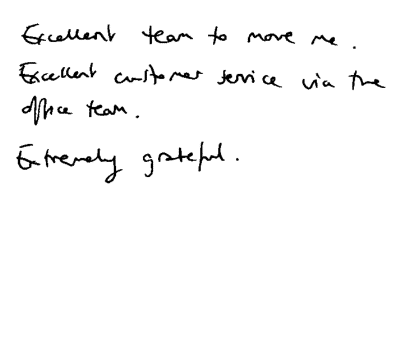 Excellent team to move me.
Excellent customer service via the
office team.
Extremely grateful.